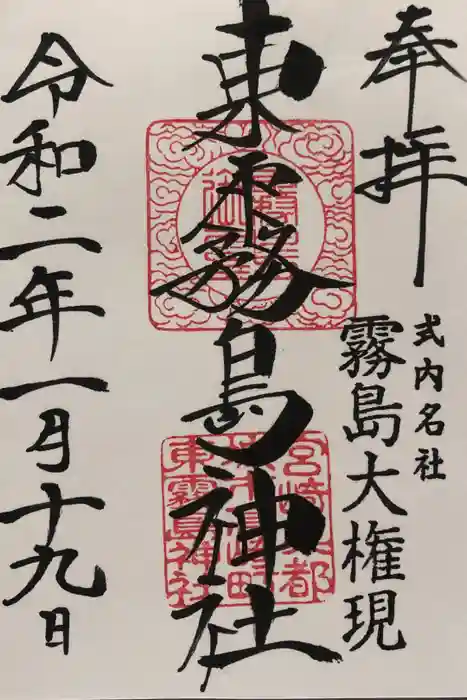 奉拝
式内名社
霧島大権現
東霧島神社
宮崎県北諸
東霧島神社
令和二年一月十九日